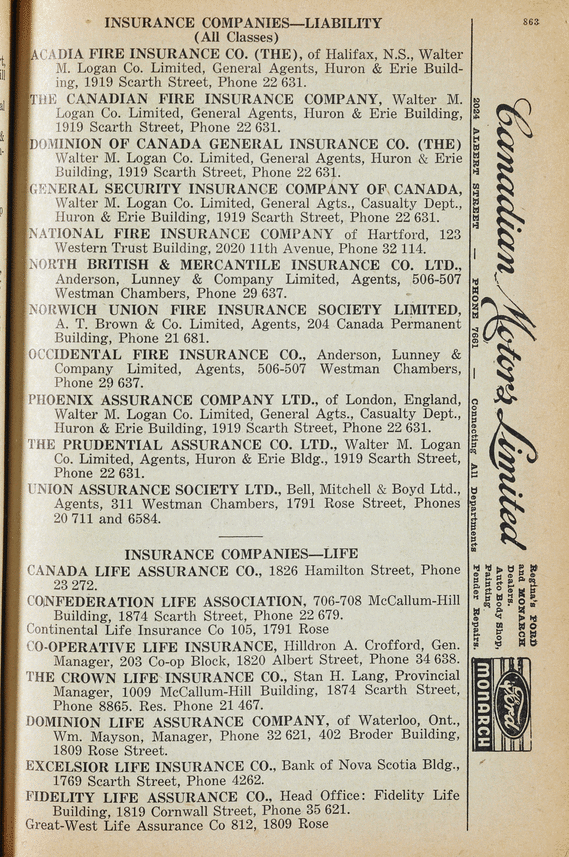 863
INSURANCE COMPANIES—LIABILITY
(All Classes)
ACADIA FIRE INSURANCE CO. (THE), of Halifax, N.S., Walter
M. Logan Co. Limited, General Agents, Huron & Erie Build-
ing, 1919 Scarth Street, Phone 22 631.
THE CANADIAN FIRE INSURANCE COMPANY, Walter M.
Logan Co. Limited, General Agents, Huron & Erie Building,
1919 Scarth Street, Phone 22 631.
DOMINION OF CANADA GENERAL INSURANCE CO. (THE)
Walter M. Logan Co. Limited, General Agents, Huron & Erie
Building, 1919 Scarth Street, Phone 22 631.
GENERAL SECURITY INSURANCE COMPANY OF CANADA,
Walter M. Logan Co. Limited, General Agts., Casualty Dept.,
Huron & Erie Building, 1919 Scarth Street, Phone 22 631.
NATIONAL FIRE INSURANCE COMPANY of Hartford, 123
Western Trust Building, 2020 11th Avenue, Phone 32 114.
NORTH BRITISH & MERCANTILE INSURANCE CO. LTD.,
Anderson, Lunney & Company Limited, Agents, 506-507
Westman Chambers, Phone 29 637.
NORWICH UNION FIRE INSURANCE SOCIETY LIMITED,
A. T. Brown & Co. Limited, Agents, 204 Canada Permanent
Building, Phone 21 681.
OCCIDENTAL FIRE INSURANCE CO., Anderson, Lunney &
Company Limited, Agents, 506-507 Westman Chambers,
Phone 29 637.
PHOENIX ASSURANCE COMPANY LTD., of London, England,
Walter M. Logan Co. Limited, General Agts., Casualty Dept.,
Huron & Erie Building, 1919 Scarth Street, Phone 22 631.
THE PRUDENTIAL ASSURANCE CO. LTD., Walter M. Logan
Co. Limited, Agents, Huron & Erie Bldg., 1919 Scarth Street,
Phone 22 631.
UNION ASSURANCE SOCIETY LTD., Bell, Mitchell & Boyd Ltd.,
Agents, 311 Westman Chambers, 1791 Rose Street, Phones
20 711 and 6584.
INSURANCE COMPANIES—LIFE
CANADA LIFE ASSURANCE CO., 1826 Hamilton Street, Phone
23 272.
CONFEDERATION LIFE ASSOCIATION, 706-708 McCallum-Hill
Building, 1874 Scarth Street, Phone 22 679.
Continental Life Insurance Co 105, 1791 Rose
CO-OPERATIVE LIFE INSURANCE, Hilldron A. Crofford, Gen.
Manager, 203 Co-op Block, 1820 Albert Street, Phone 34 638.
THE CROWN LIFE INSURANCE CO., Stan H. Lang, Provincial
Manager, 1009 McCallum-Hill Building, 1874 Scarth Street,
Phone 8865. Res. Phone 21 467.
DOMINION LIFE ASSURANCE COMPANY, of Waterloo, Ont.,
Wm. Mayson, Manager, Phone 32 621, 402 Broder Building,
1809 Rose Street.
EXCELSIOR LIFE INSURANCE CO., Bank of Nova Scotia Bldg.,
1769 Scarth Street, Phone 4262.
FIDELITY LIFE ASSURANCE CO., Head Office: Fidelity Life
Building, 1819 Cornwall Street, Phone 35 621.
Great-West Life Assurance Co 812, 1809 Rose
Canadian Motors Limited
2024 ALBERT STREET — PHONE 7661 — Connecting All Departments
Regina's FORD
and MONARCH
Dealers.
Auto Body Shop,
Painting
Fender Repairs.
Ford
MONARCH